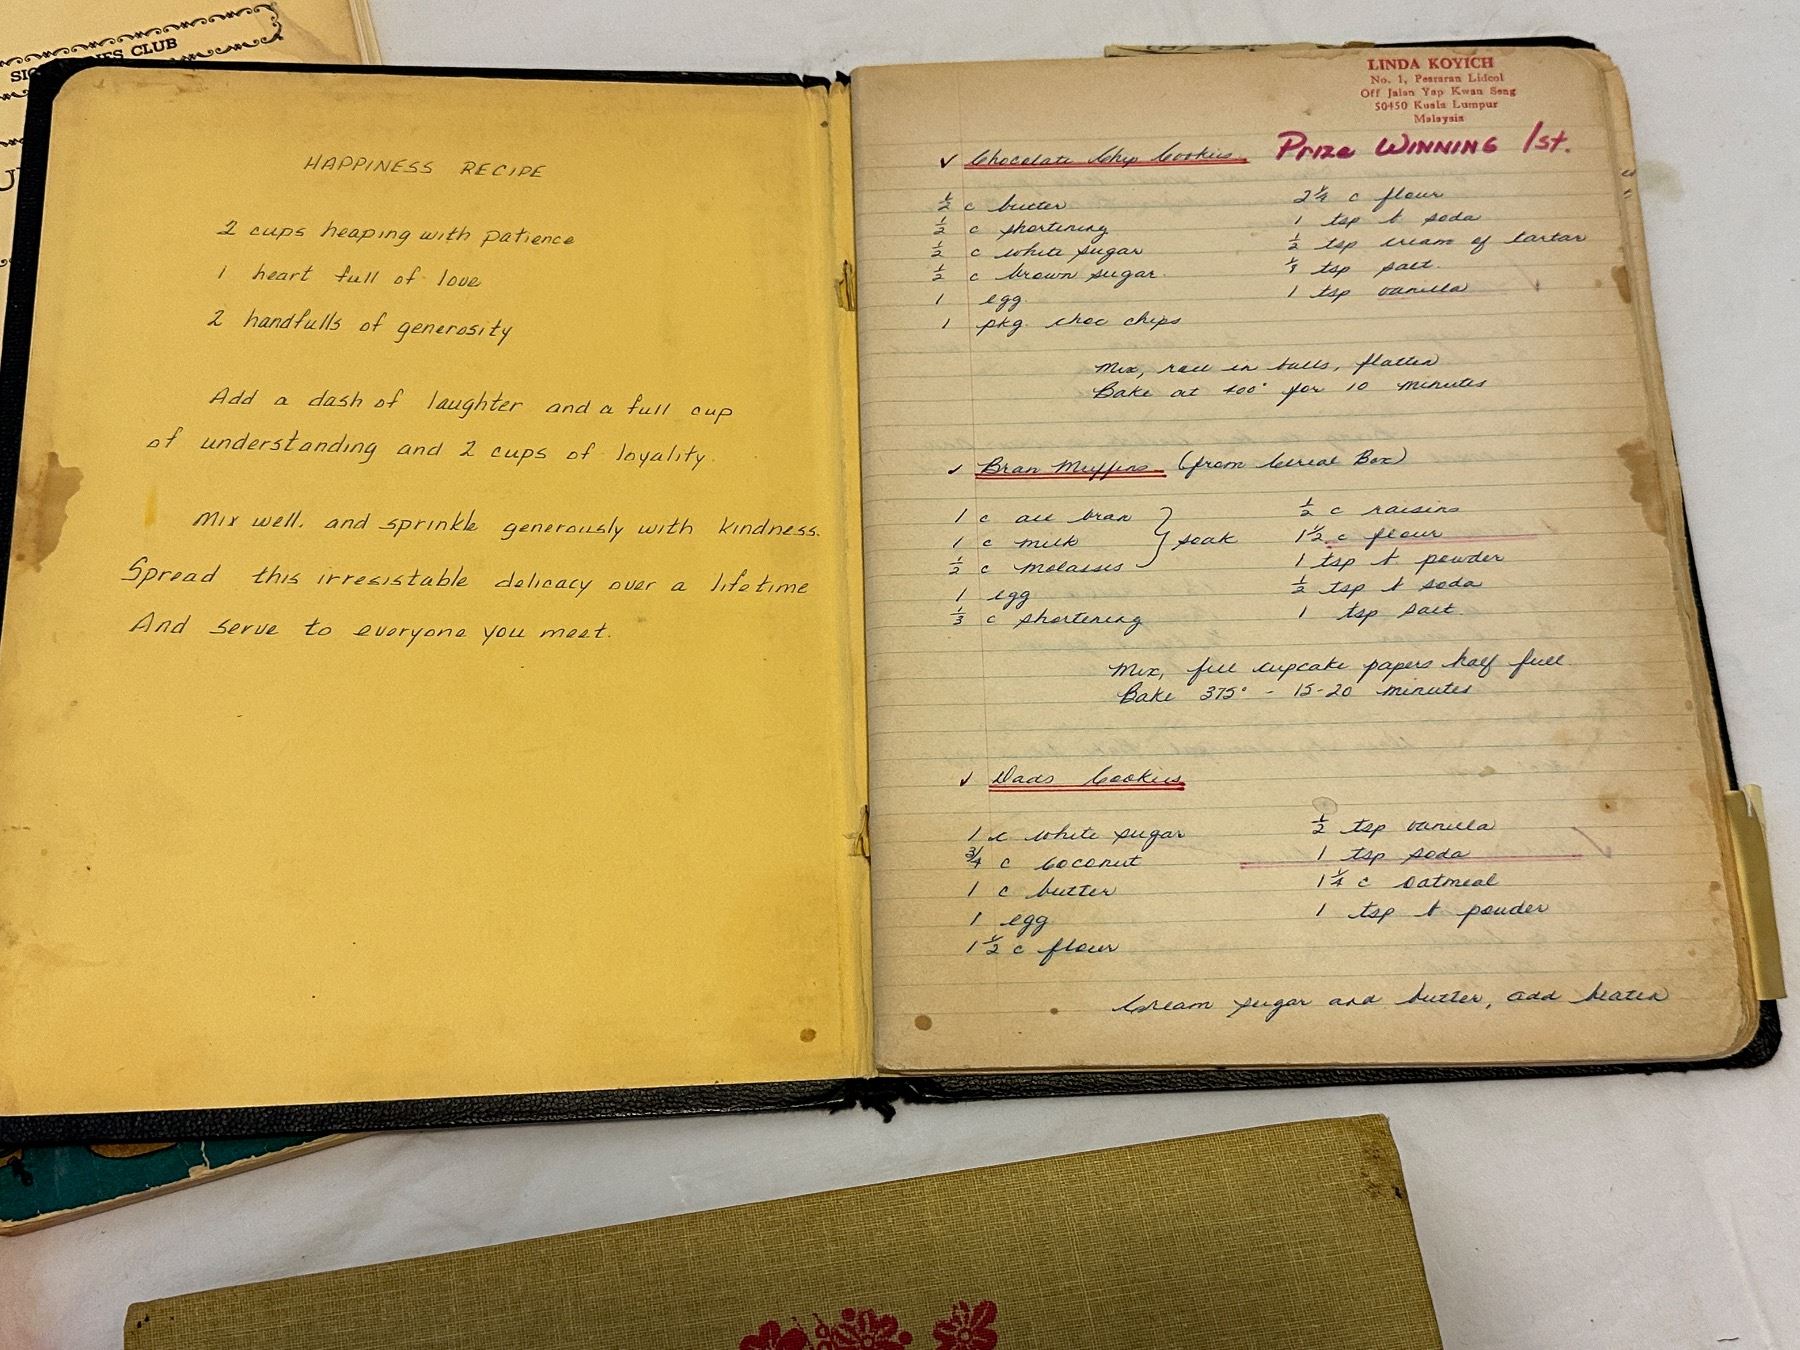 IES CLUB
HAPPINESS RECIPE
2 cups heaping with patience
1 heart full of love
2 handfulls of generosity
Add a dash of laughter and a full cup
of understanding and 2 cups of loyality.
Mix well. and sprinkle generously with kindness.
Spread this irresistable delicacy over a lifetime
And serve to everyone you meet.
LINDA KOYICH
No. 1, Pesraran Lidcol
Off Jalan Yap Kwan Seng
50450 Kuala Lumpur
Malaysia
✓ Chocolate Chip Cookies Prize WINNING 1st.
1/2 c butter
1/2 c shortening
1/2 c white sugar
1/2 c brown sugar
1 egg
1 pkg. choc chips
2 1/4 c flour
1 tsp b soda
1/2 tsp cream of tartar
tsp salt.
1 tsp vanilla
Mix, roll in balls, flatten
Bake at 400° for 10 minutes
✓ Bran Muffins (from Cereal Box)
1 c all bran
1 c milk } soak
1/2 c molasses
1 egg
1/3 c shortening
1/2 c raisins
1 1/2 c flour
1 tsp b powder
1/2 tsp b soda
1 tsp salt
Mix, fill cupcake papers half full.
Bake 375° - 15-20 minutes
✓ Dads Cookies
1 c white sugar
3/4 c coconut
1 c butter
1 egg
1 1/2 c flour
1/2 tsp vanilla
1 tsp soda
1 1/4 c oatmeal
1 tsp b powder
Cream sugar and butter, add beaten